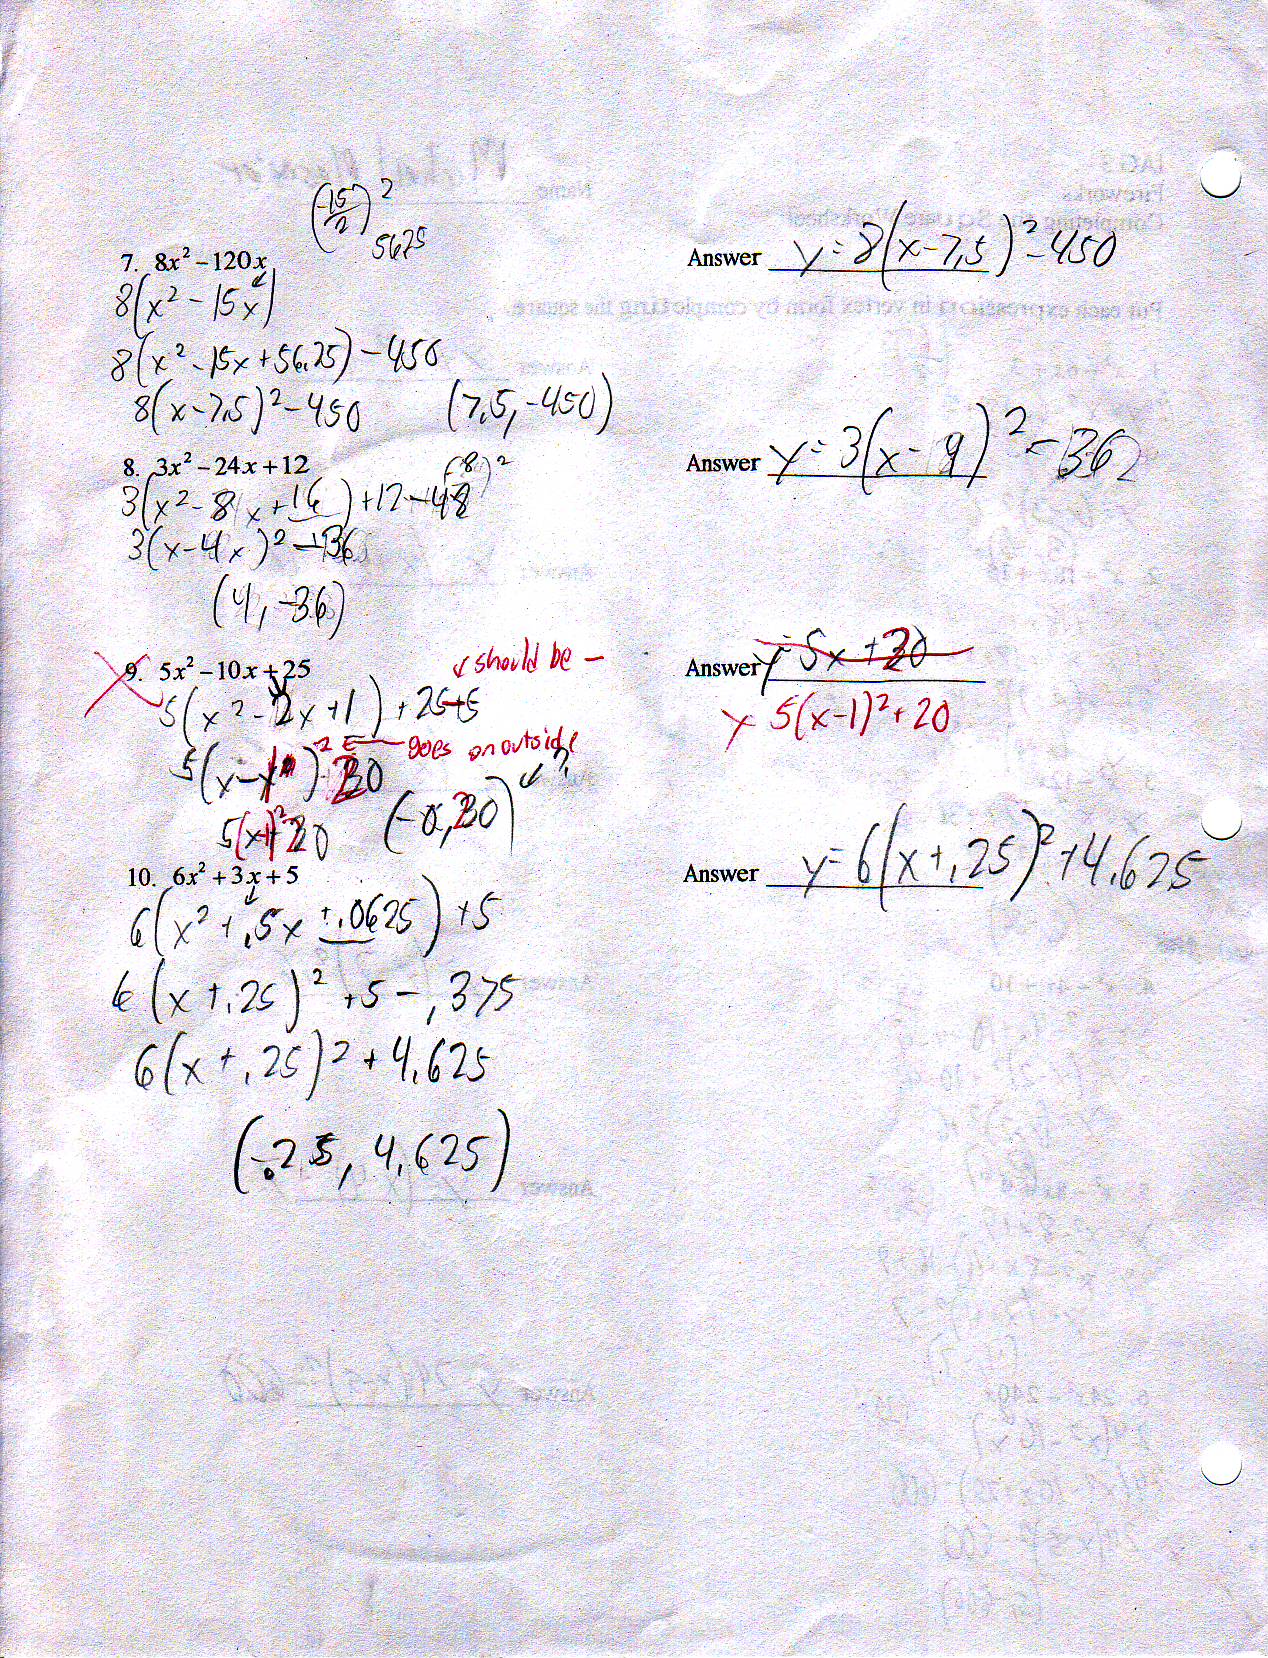 (-15/2)²
5625
7. 8x² – 120x
Answer y = 8(x-7.5)² - 450
8(x² - 15x)
8(x² - 15x + 56.25) - 450
8(x-7.5)² - 450 (7.5, -450)
8. 3x² – 24x + 12
(-8/2)²
Answer y = 3(x-9)² - 36
3(x² - 8x + 16) + 12 - 48
3(x-4x)² - 36
(4, -36)
9. 5x² – 10x + 25
↙ should be -
Answer y = 5x + 30
y 5(x-1)² + 20
5(x² - 2x + 1) + 25 + 5
² ← goes on outside
5(x - 1) 20
5(x-1)² 20 (-0, 20) ↙ ?
10. 6x² + 3x + 5
Answer y = 6(x + .25)² + 4.625
6(x² + .5x + .0625) + 5
6(x + .25)² + 5 - .375
6(x + .25)² + 4.625
(-.25, 4.625)